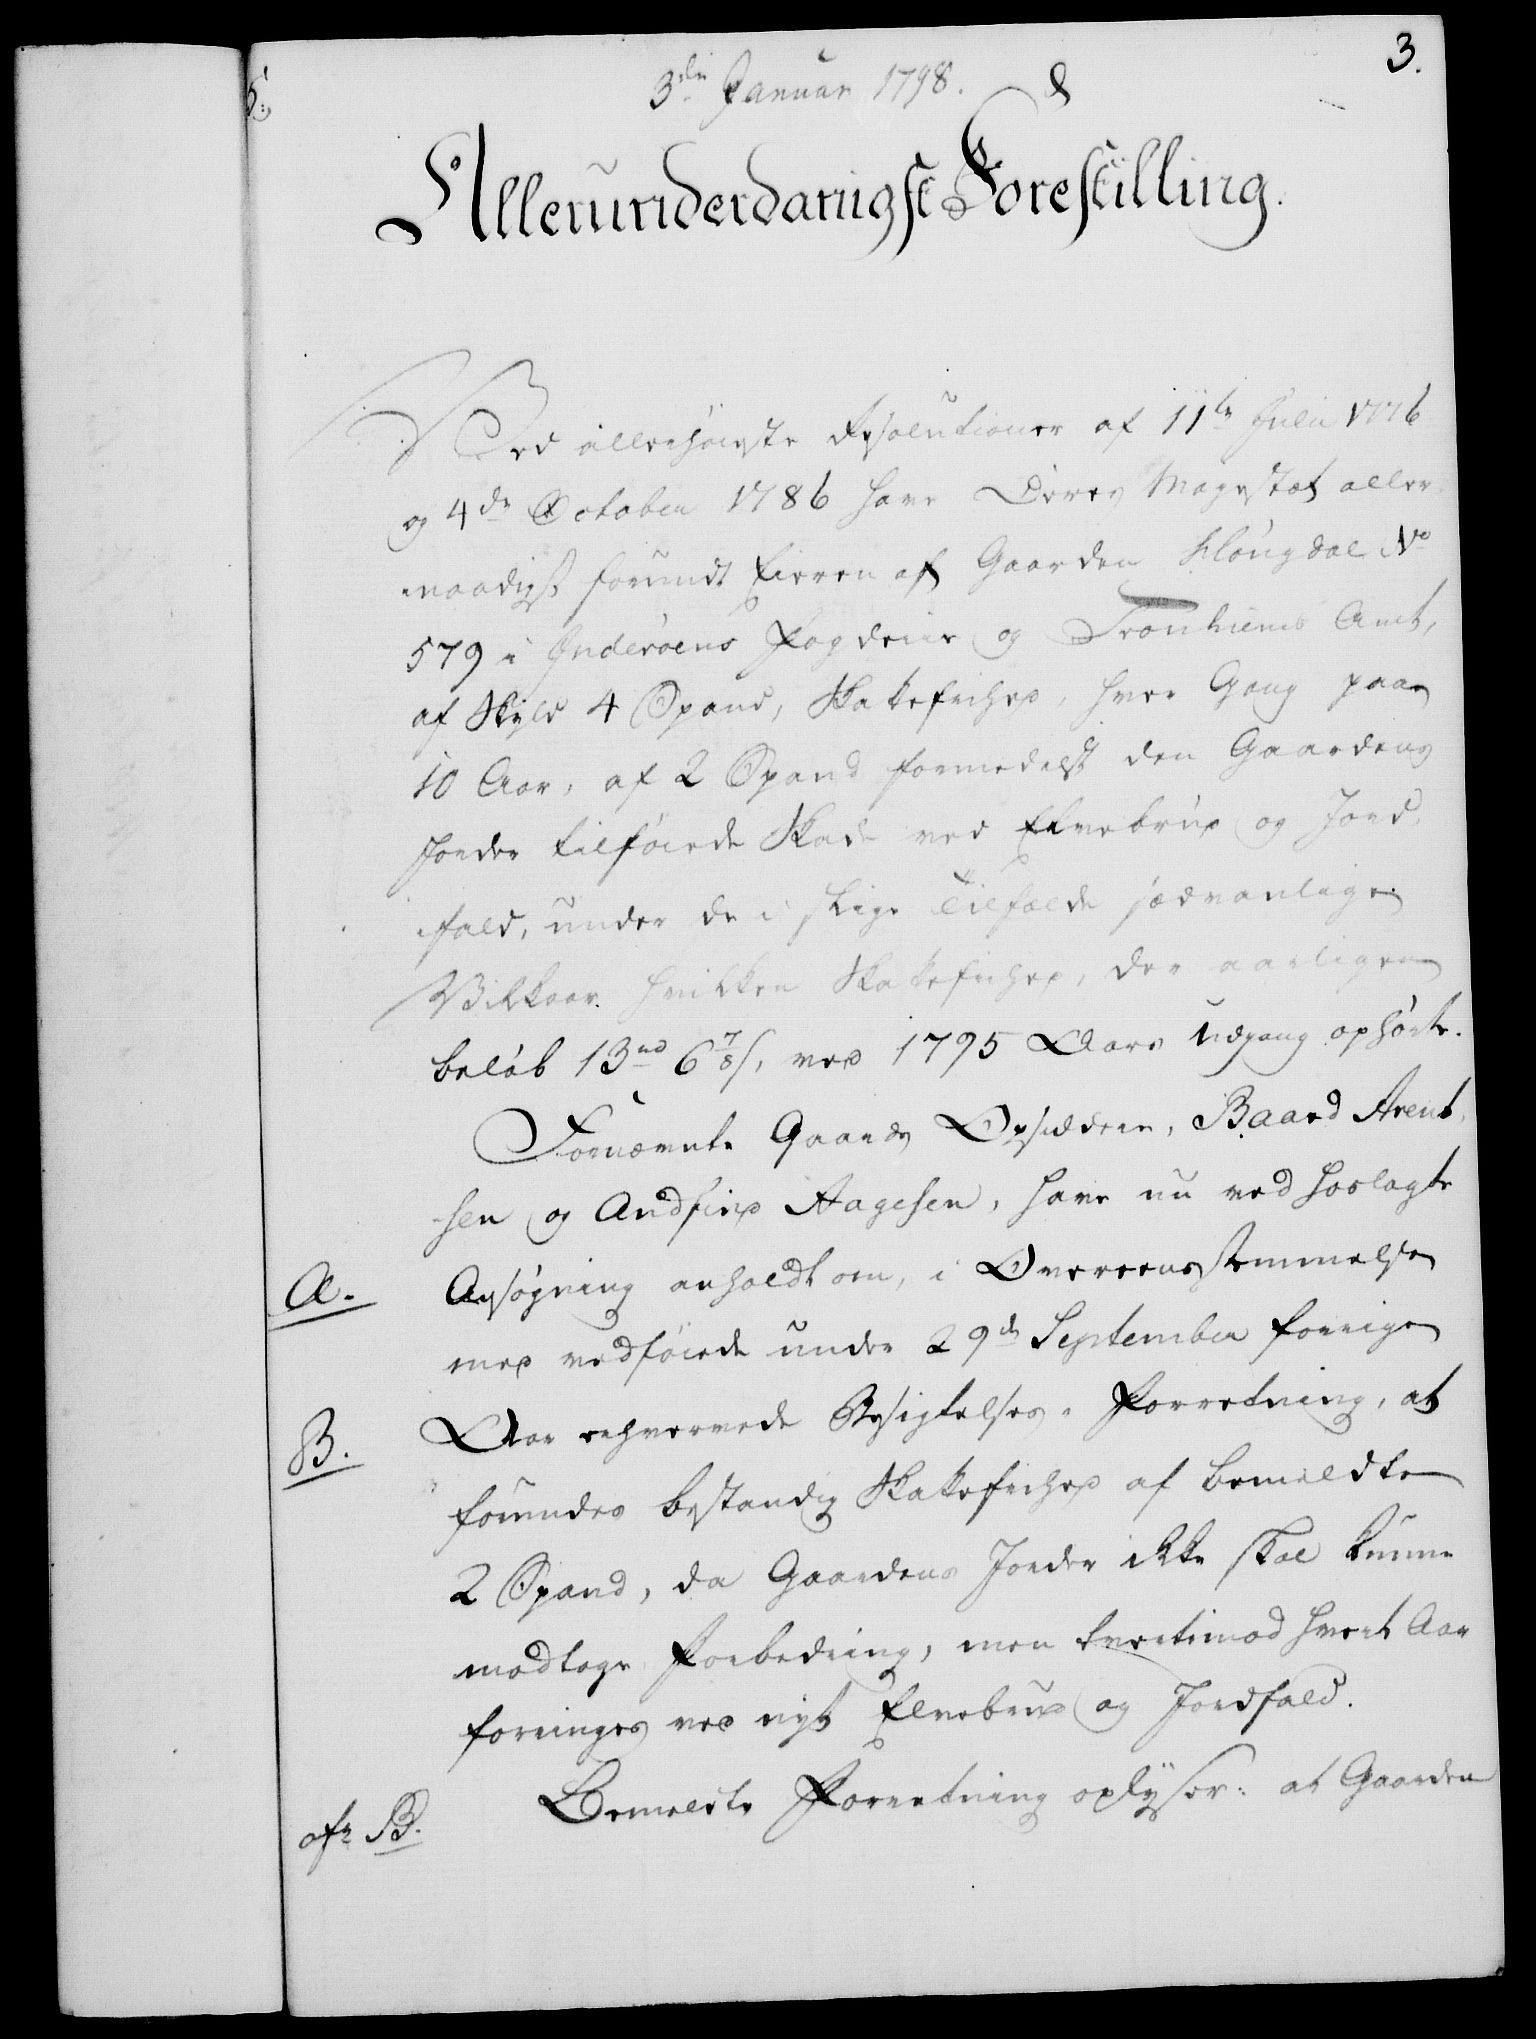 3.
3die Januar 1798.
Allerunderdanigst Forestilling.
Ved allerhøieste Resolutioner af 11te Julii 1776
og 4de October 1786 have Deres Majestæt aller-
naadigst forundt Eieren af Gaarden Klóugdal No
579 i Inderøens Fogderie og Tronhiems Amt,
af Skyld 4 Spand, Skatefrihed, hver Gang paa
10 Aar, af 2 Spand formedelst den Gaardens
Jorder tilføiede Skade ved Elvebrud og Jord-
fald, under de i slige Tilfælde sædvanlige
Vilkaar. Hvilken Skatefrihed, der aarligen
beløb 13rd 6 7/8 s, ved 1795 Aars Udgang ophørte.
Fornævnte Gaards Opsiddere, Baard Arent-
sen og Andfind Aagesen, have nu ved hoslagte
A. Ansøgning anholdt om, i Overeensstemmelse
med vedføiede under 29de September forrige
B. Aar erhvervede Besigtelses-Forretning, at
forundes bestandig Skatefrihed af bemeldte
2 Spand, da Gaardens Jorder ikke skal kunne
modtage Forbedring, men tvertimod hvert Aar
forringes ved nyt Elvebrud og Jordfald.
afr B. Bemeldte Forretning oplyser: at Gaarden